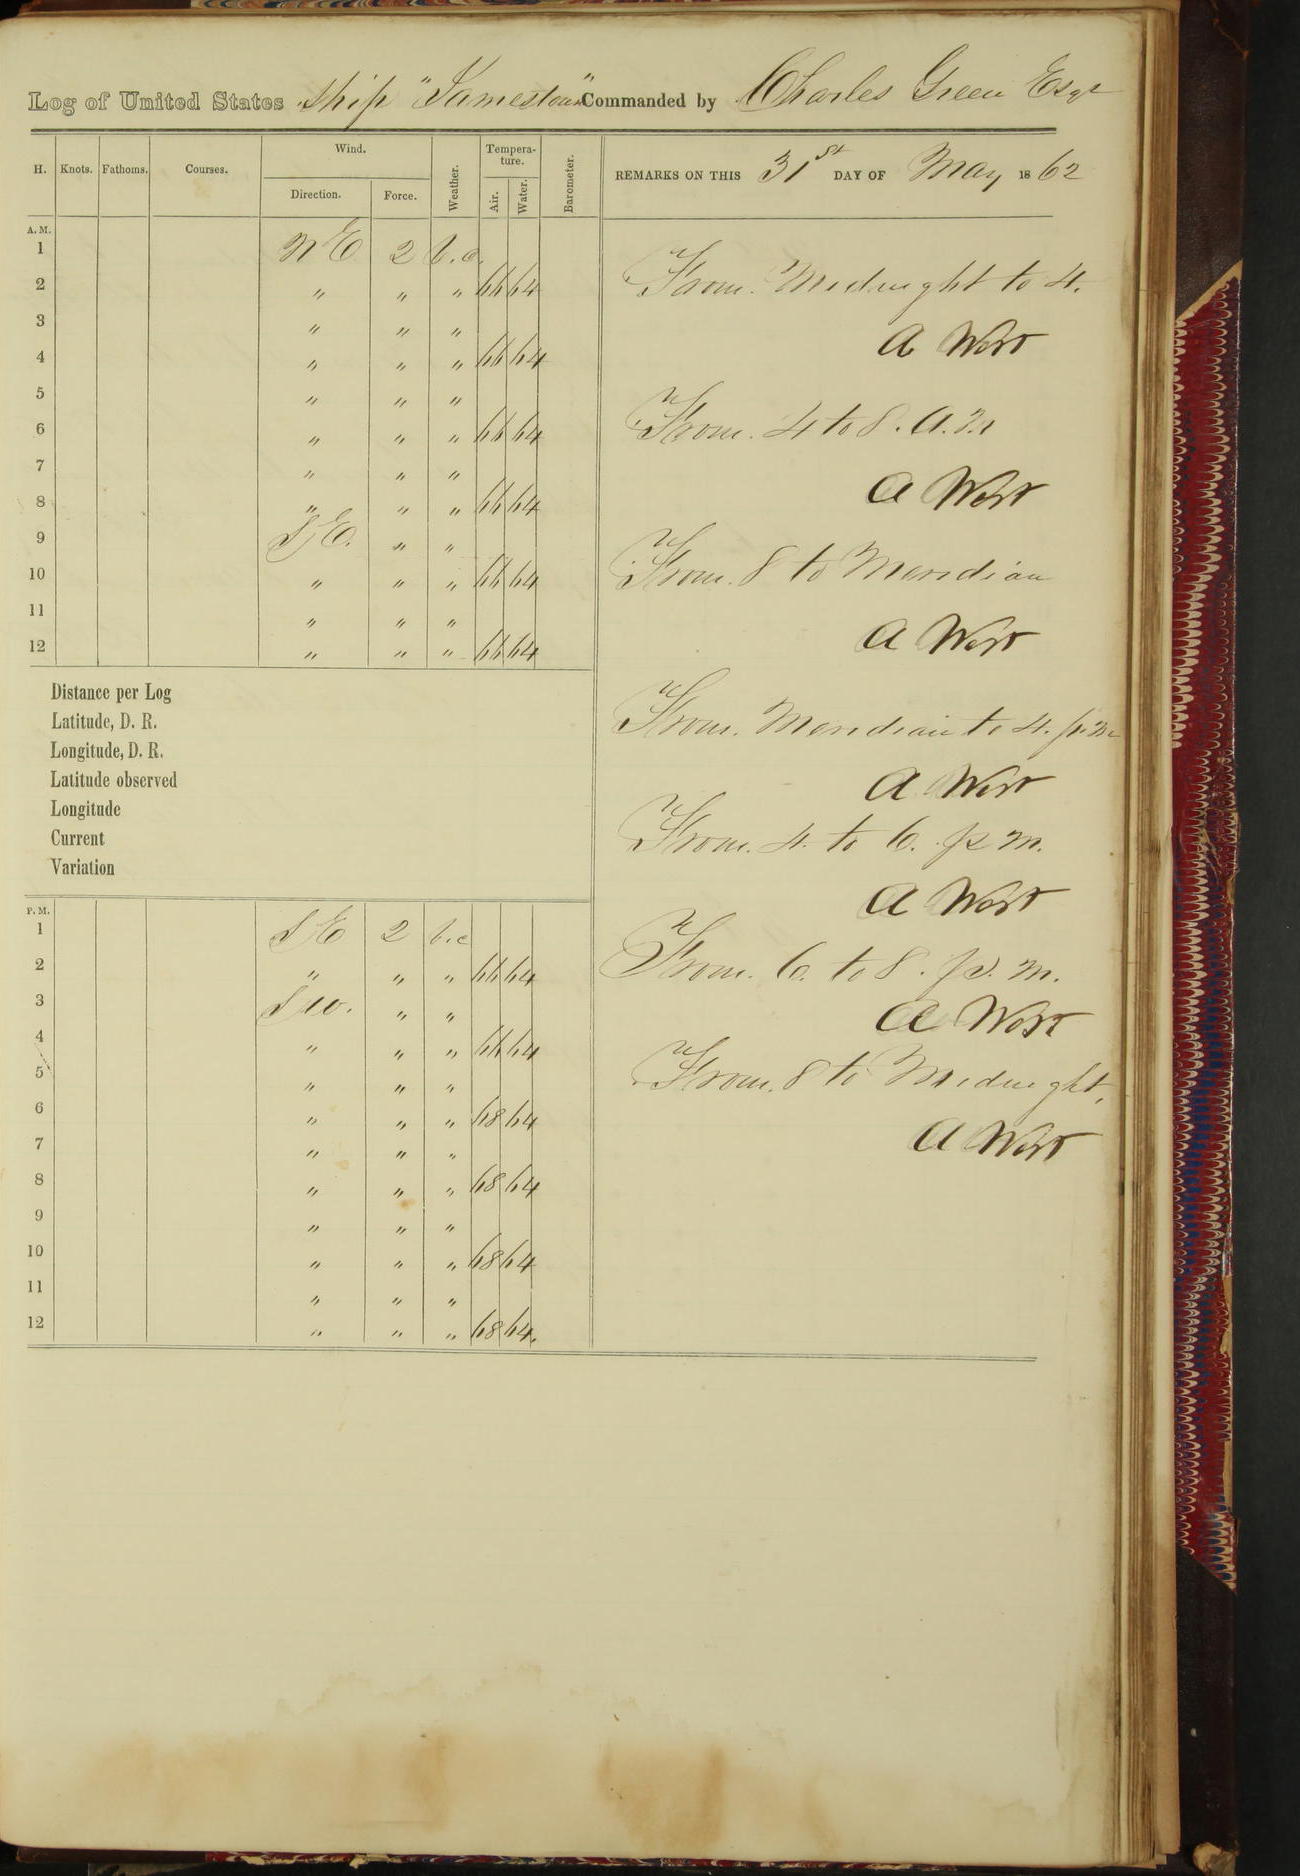 Log of United States Ship "Jamestown" Commanded by Charles Green Esqr
H. Knots. Fathoms. Courses. Wind. Direction. Force. Weather. Tempera-ture. Air. Water. Barometer. REMARKS ON THIS 31st DAY OF May 1862
A. M.
1 N E 2 b.c.
2 " " " 66 64
3 " " "
4 " " " 66 64
5 " " "
6 " " " 66 64
7 " " "
8 " " " 66 64
9 S E. " "
10 " " " 66 64
11 " " "
12 " " " 66 64
Distance per Log
Latitude, D. R.
Longitude, D. R.
Latitude observed
Longitude
Current
Variation
P. M.
1 S E 2 b.c
2 " " " 66 64
3 S W. " "
4 " " " 66 64
5 " " "
6 " " " 68 64
7 " " "
8 " " " 68 64
9 " " "
10 " " " 68 64
11 " " "
12 " " " 68 64.
From. Midnight to 4.
A West
From. 4 to 8. A.M
A West
From. 8 to Meridian
A West
From. Meridian to 4. p.m
A West
From. 4. to 6. p m.
A West
From. 6. to 8. p. m.
A West
From. 8 to Midnight,
A West